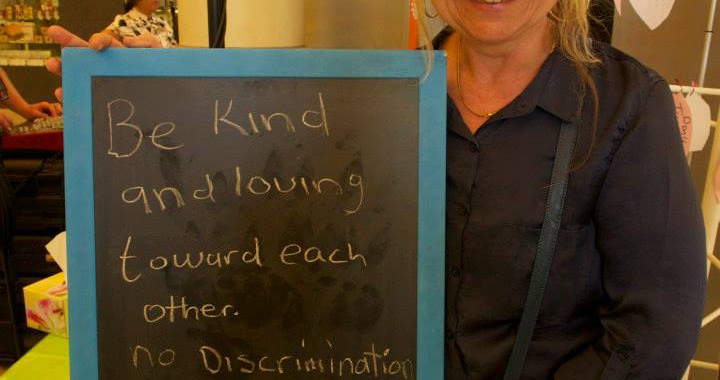 Be Kind
and loving
toward each
other.
no Discrimination